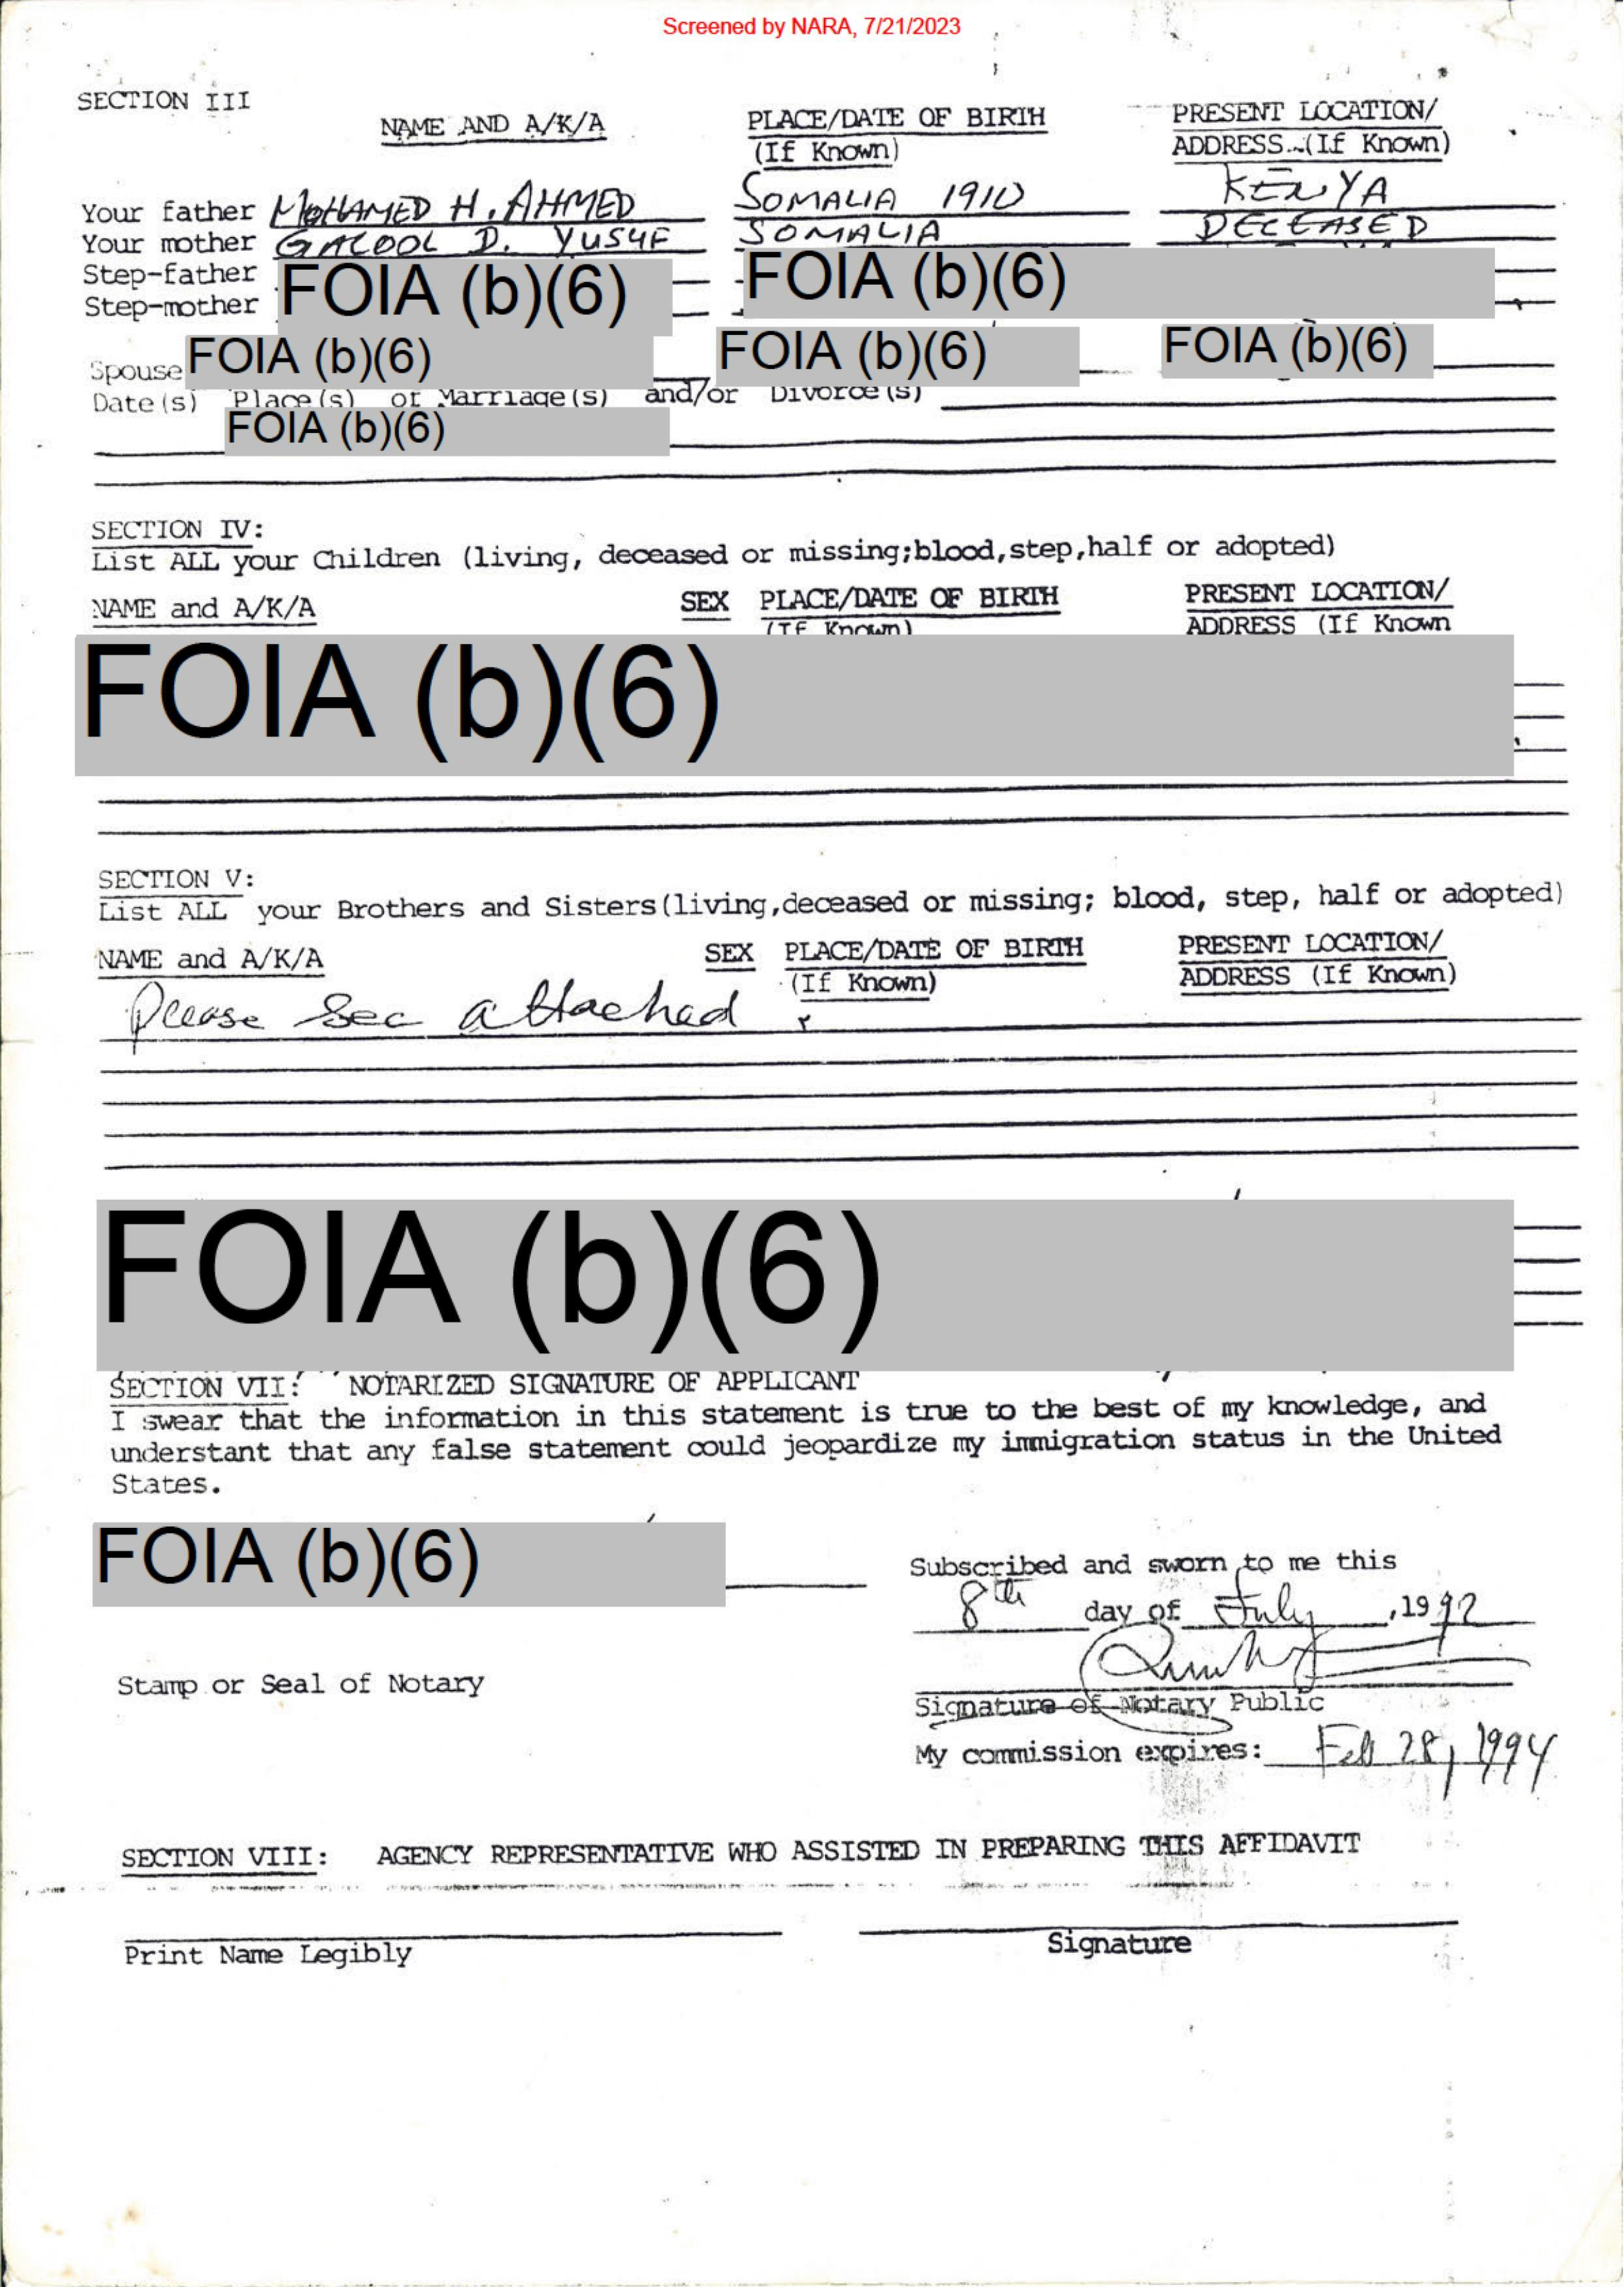 Screened by NARA, 7/21/2023
SECTION III
NAME AND A/K/A PLACE/DATE OF BIRTH PRESENT LOCATION/
(If Known) ADDRESS (If Known)
Your father MOHAMED H. AHMED SOMALIA 1910 KENYA
Your mother GALOOL D. YUSUF SOMALIA DECEASED
Step-father FOIA (b)(6) FOIA (b)(6)
Step-mother
Spouse FOIA (b)(6) FOIA (b)(6) FOIA (b)(6)
Date(s) Place(s) of Marriage(s) and/or Divorce(s)
FOIA (b)(6)
SECTION IV:
List ALL your Children (living, deceased or missing;blood,step,half or adopted)
NAME and A/K/A SEX PLACE/DATE OF BIRTH PRESENT LOCATION/
(If Known) ADDRESS (If Known
FOIA (b)(6)
SECTION V:
List ALL your Brothers and Sisters(living,deceased or missing; blood, step, half or adopted)
NAME and A/K/A SEX PLACE/DATE OF BIRTH PRESENT LOCATION/
(If Known) ADDRESS (If Known)
Please See attached
FOIA (b)(6)
SECTION VII: NOTARIZED SIGNATURE OF APPLICANT
I swear that the information in this statement is true to the best of my knowledge, and
understant that any false statement could jeopardize my immigration status in the United
States.
FOIA (b)(6)
Subscribed and sworn to me this
8th day of July ,1992
Stamp or Seal of Notary
Signature of Notary Public
My commission expires: Feb 28, 1994
SECTION VIII: AGENCY REPRESENTATIVE WHO ASSISTED IN PREPARING THIS AFFIDAVIT
Print Name Legibly Signature